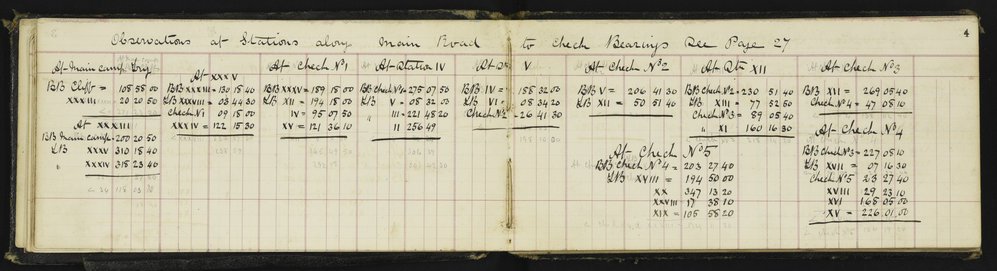 4
Observations at Stations along Main Road to Check Bearings See Page 27
At Main Camp Trig
BB Cliff = 108 58 00
XXXIII = 20 20 50
At XXXIII
BB Main Camp = 200 20 50
LB XXXV 310 18 40
" XXXIV 318 23 40
At XXXV
BB XXXIII = 130 18 40
LB XXXVIII = 03 44 30
Check No 1 09 18 00
XXXIV = 122 15 30
At Check No 1
BB XXXV = 189 18 00
LB XII = 194 18 00
IV = 95 07 50
XV = 121 36 10
At Station IV
BB Check No 1 = 275 07 50
LB V = 08 32 00
" III = 221 48 20
II 256 49
At Stn V
BB IV = 188 32 00
LB VI = 08 34 20
Check No 2 = 26 41 30
At Check No 2
BB V = 206 41 30
LB XII = 50 51 40
At Stn XII
BB Check No 2 = 230 51 40
LB XIII = 77 52 50
Check No 3 = 89 08 40
" XI 160 16 30
At Check No 3
BB XII = 269 08 40
Check No 4 = 47 08 10
At Check No 4
BB Check No 3 = 227 08 10
LB XVII = 07 16 30
Check No 5 23 27 40
XVIII 29 23 10
XVI 168 05 00
XV = 226 01 00
At Check No 5
BB Check No 4 = 203 27 40
LB XVIII = 194 50 00
XX 347 13 20
XXVIII 17 38 10
XIX = 105 58 20